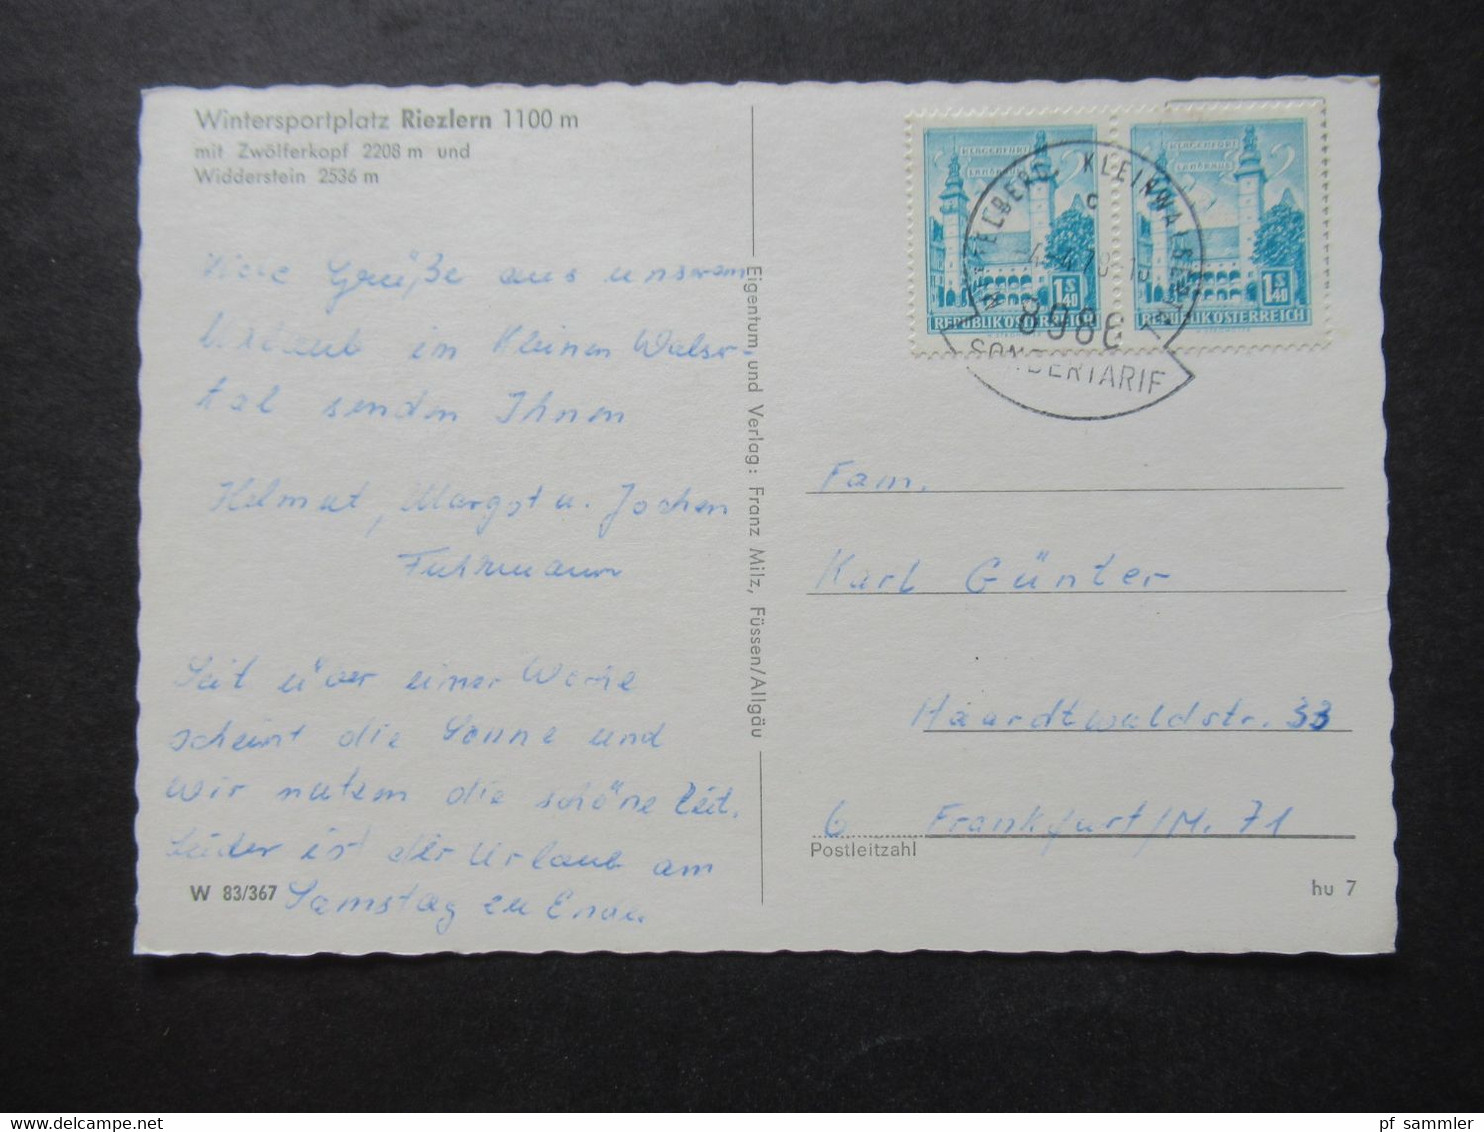 Wintersportplatz Riezlern 1100 m
mit Zwölferkopf 2208 m und
Widderstein 2536 m
Viele Grüße aus unserem
Urlaub im Kleinen Walser-
tal senden Ihnen
Helmut, Margot u. Jochen
Fuhrmann
Seit über einer Woche
scheint die Sonne und
wir nutzen die schöne Zeit.
Leider ist der Urlaub am
Samstag zu Ende.
W 83/367
Eigentum und Verlag: Franz Milz, Füssen/Allgäu
KLAGENFURT
LANDHAUS
1 S 40
REPUBLIK ÖSTERREICH
KLAGENFURT
LANDHAUS
1 S 40
REPUBLIK ÖSTERREICH
KLEINWALSERTAL
c
SONDERTARIF
Fam.
Karl Günter
Haardtwaldstr. 33
6 Frankfurt/M. 71
Postleitzahl
hu 7
pf_sammler
www.delcampe.net